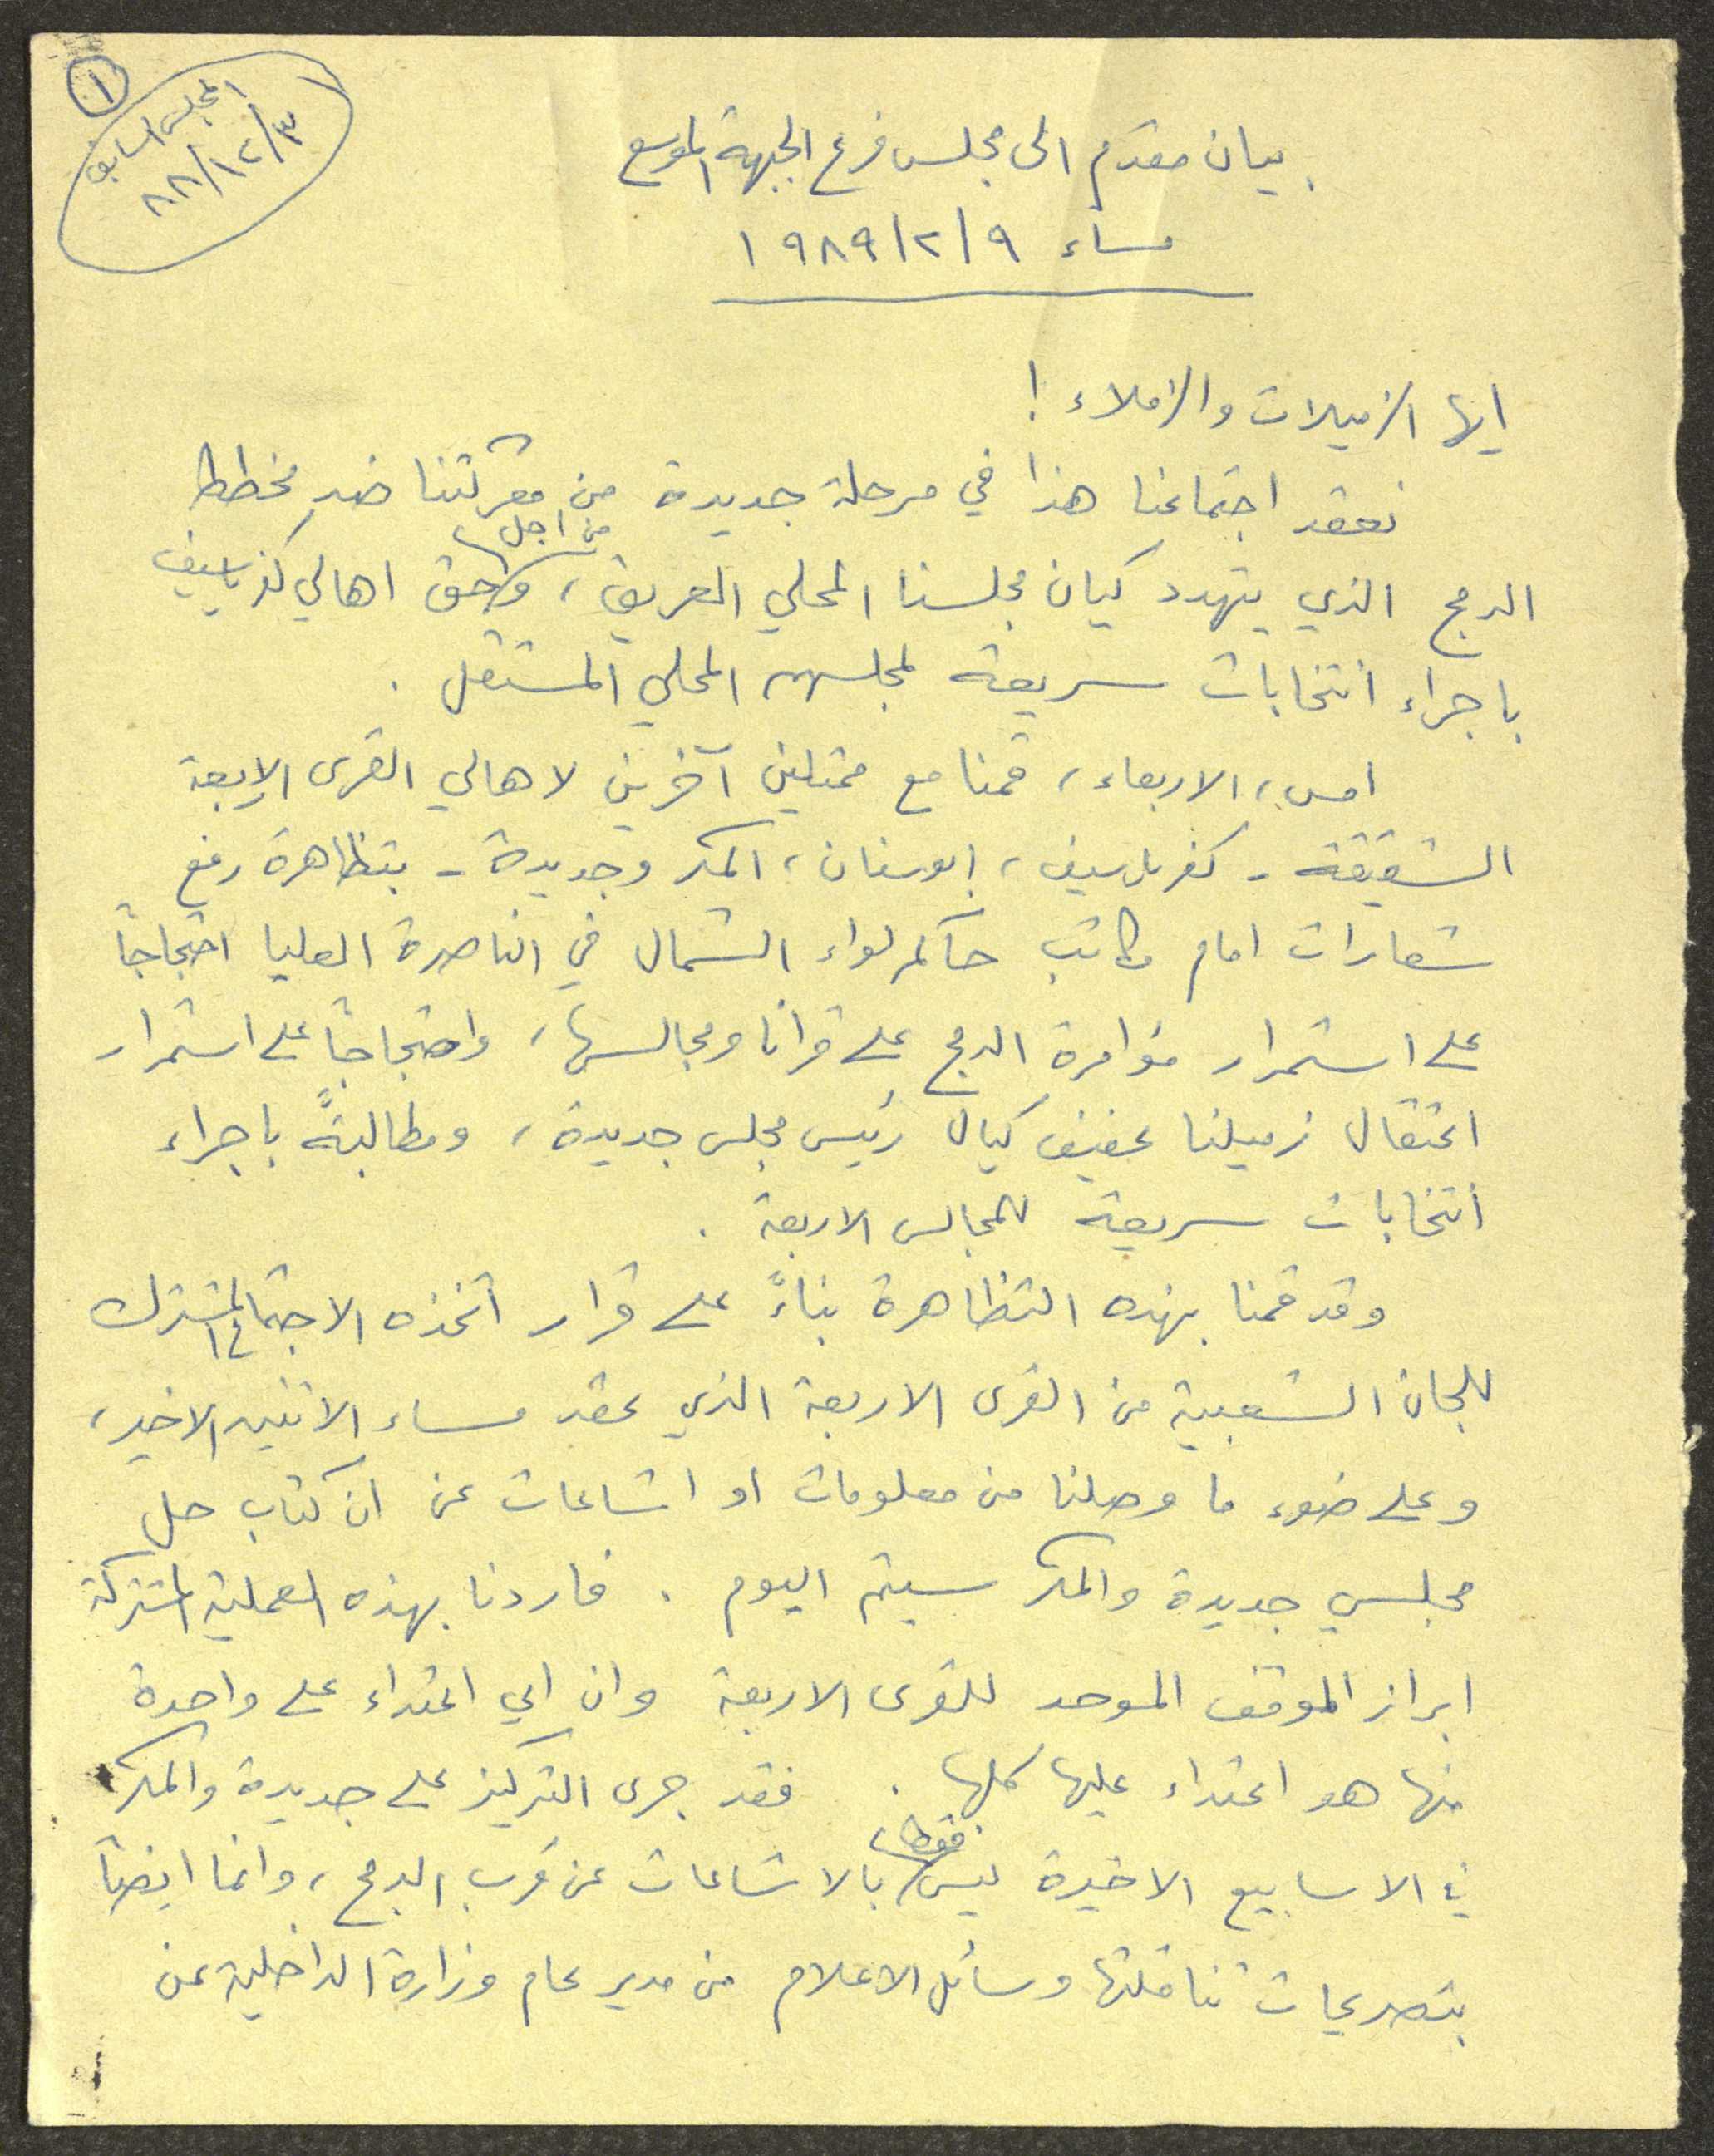 ١
المجلس السابق
٣/١٢/٨٨
بيان مقدم الى مجلس فرع الجبهة الموسع
مساء ٩/٢/١٩٨٩
ايها الزميلات والزملاء !
نعقد اجتماعنا هذا في مرحلة جديدة من معركتنا ضد مخطط
الدمج الذي يتهدد كيان مجلسنا المحلي العريق، و من اجل حق اهالي كفرياسيف
باجراء انتخابات سريعة لمجلسهم المحلي المستقل .
امس، الاربعاء، قمنا مع ممثلين آخرين لاهالي القرى الاربعة
الشقيقة - كفرياسيف، ابوسنان، المكر وجديدة - بتظاهرة رفع
شعارات امام مكاتب حاكم لواء الشمال في الناصرة العليا احتجاجاً
على استمرار مؤامرة الدمج على قرانا ومجالسها، واحتجاجاً على استمرار
اعتقال زميلنا عفيف كيال رئيس مجلس جديدة، ومطالبةً باجراء
انتخابات سريعة للمجالس الاربعة .
وقد قمنا بهذه التظاهرة بناءً على قرار اتخذه الاجتماع المشترك
للجان الشعبية من القرى الاربعة الذي عقد مساء الاثنين الاخير،
وعلى ضوء ما وصلنا من معلومات او اشاعات عن ان كتاب حل
مجلسي جديدة والمكر سيتم اليوم . فاردنا بهذه العملية المشتركة
ابراز الموقف الموحد للقرى الاربعة وان اي اعتداء على واحدة
منها هو اعتداء عليها كلها . فقد جرى التركيز على جديدة والمكر
في الاسابيع الاخيرة ليس فقط بالاشاعات عن قرب الدمج، وانما ايضاً
بتصريحات تناقلتها وسائل الاعلام من مدير عام وزارة الداخلية عن